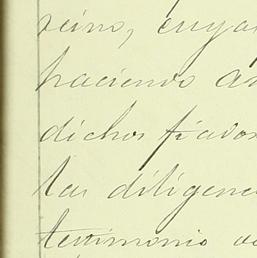 reino, cuya
haciendo
dichos fiavos
las diligenc
testimonio de